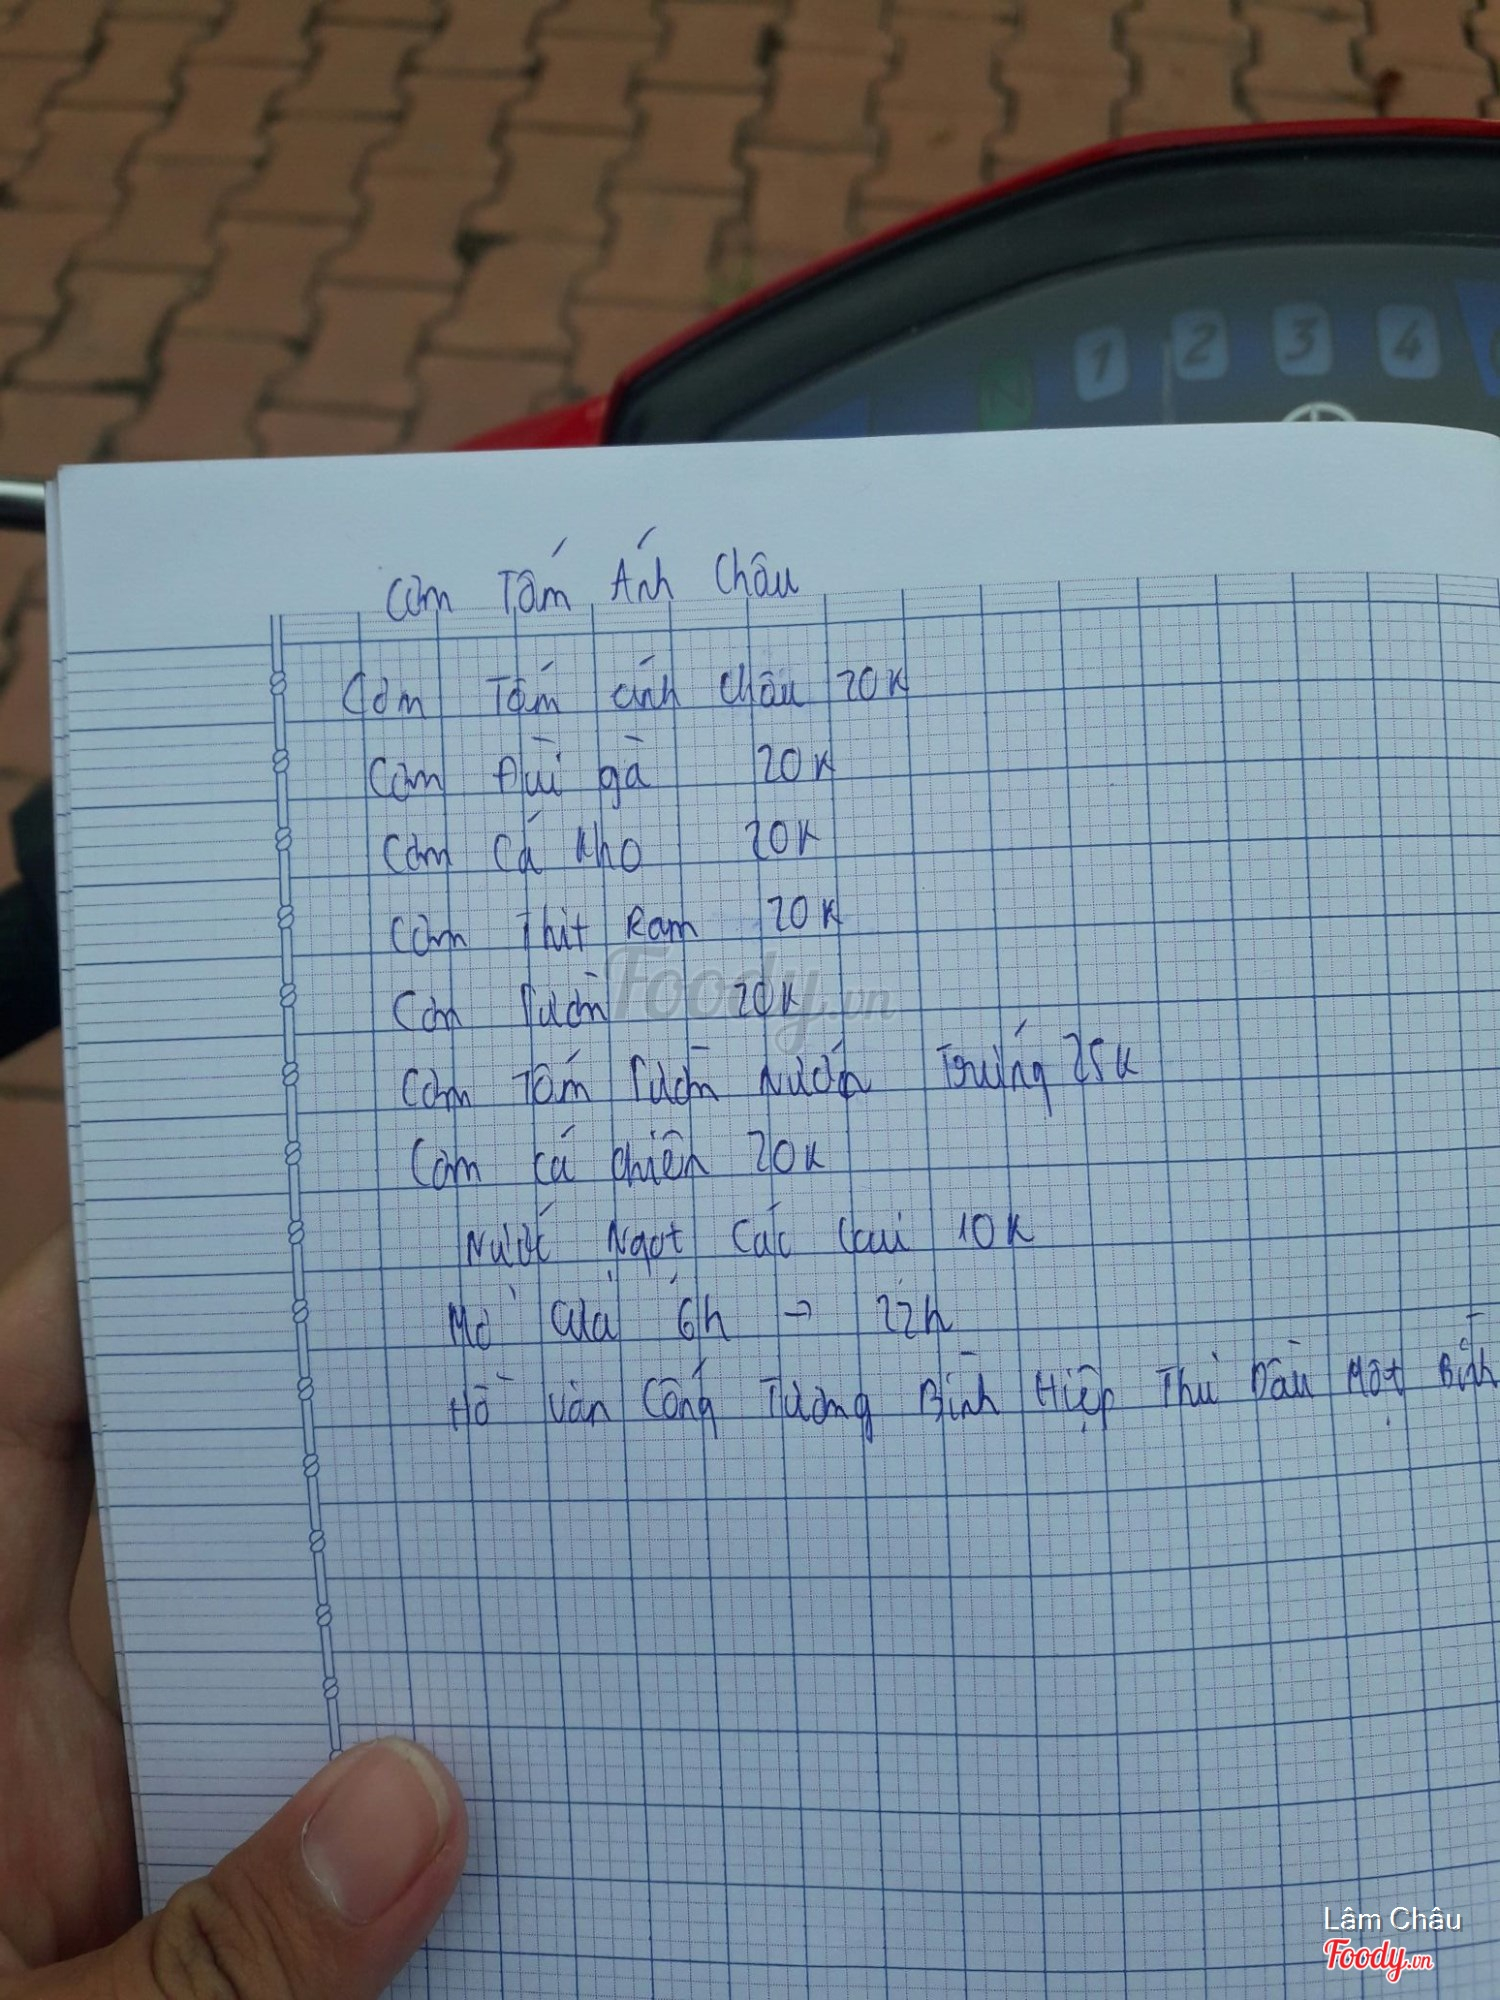 1 2 3 4
N
Cơm Tấm Ánh Châu
Cơm Tấm ánh Châu 20K
Cơm Đùi gà 20K
Cơm Cá kho 20K
Cơm Thịt Ram 20K
Cơm Sườn 20K
Cơm Tấm Sườn Nướn Trứng 25K
Cơm cá chiên 20K
Nước Ngọt Các Loại 10K
Mở Cửa 6h → 22h
Hồ Văn Cống Tương Bình Hiệp Thủ Dầu Một Bình
Foody.vn
Lâm Châu
Foody.vn